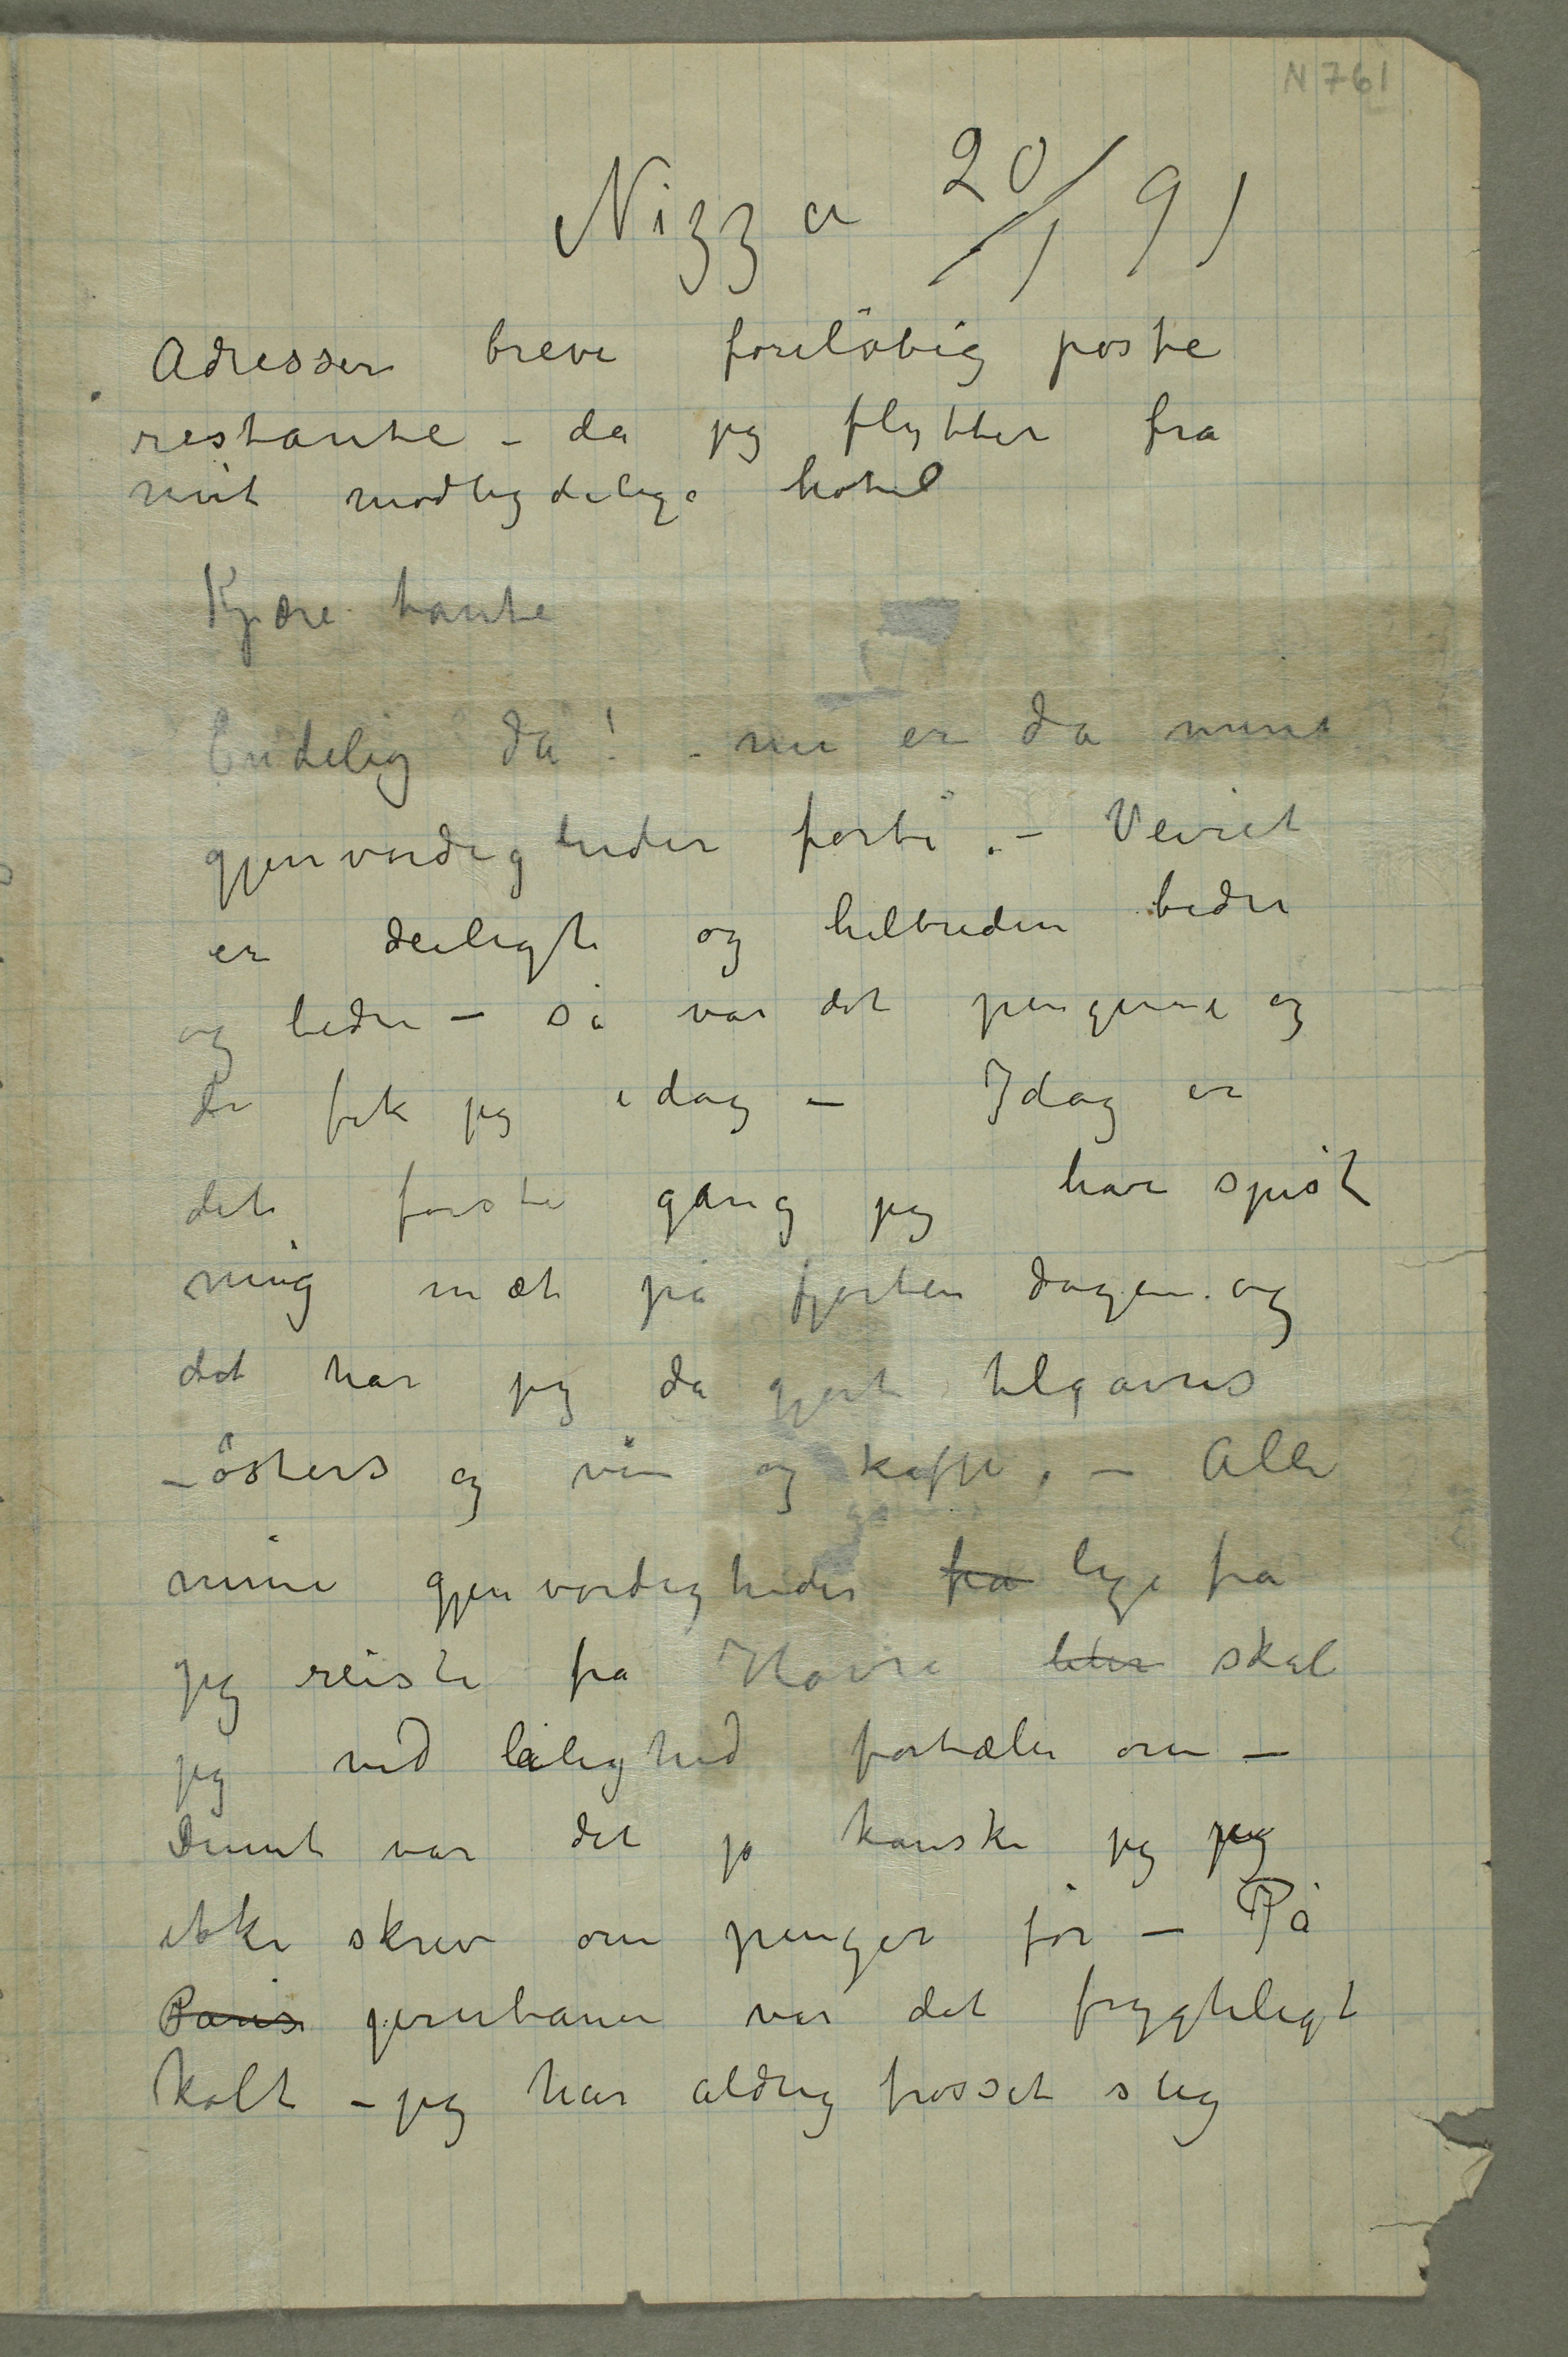 N 761
Nizza 20/1 91
Adresser breve foreløbig poste
restante – da jeg flytter fra
mit modbydelige hotel
Kjære tante
Endelig da! – nu er da mine
gjenvordigheder forbi. – Veiret
er deiligt og helbreden bedre
og bedre – så var det pengene og
de fik jeg idag – Idag er
det første gang jeg har spist
mig mæt på fjorten dage. og
det har jeg da gjort tilgavns
– østers og vin og kaffe. – Alle
mine gjenvordigheder fra lige fra
jeg reiste fra Havre skal
jeg ved leilighed fortælle om –
Dumt var det jo kanske jeg jeg
ikke skrev om penger før – På
Paris jernbanen var det frygteligt
kolt – jeg har aldrig frosset slig